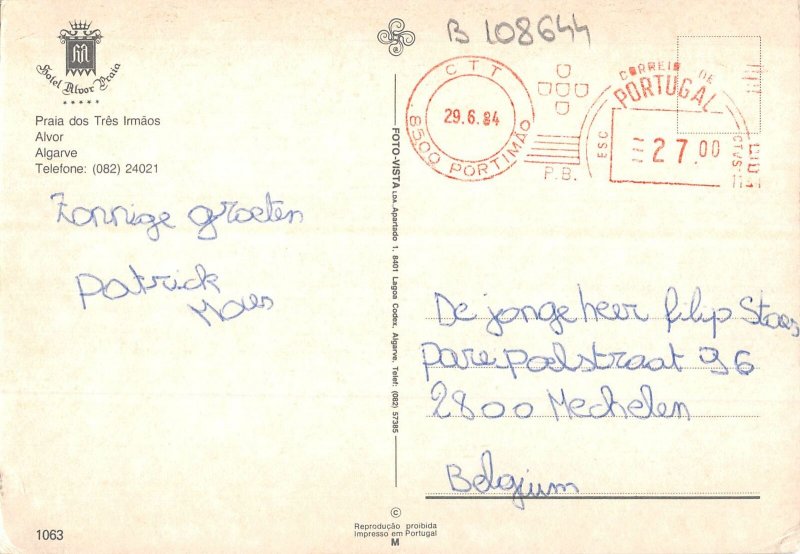 Hotel Alvor Praia
Praia dos Três Irmãos
Alvor
Algarve
Telefone: (082) 24021
Zonnige groeten
Patrick
Maes
1063
FOTO-VISTA LDA. Apartado 1. 8401 Lagoa Codex. Algarve. Telef: (082) 57385
©
Reprodução proibida
Impresso em Portugal
M
B 108644
CTT
29.6.84
8500 PORTIMÃO
P.B.
CORREIO DE
PORTUGAL
ESC
27.00
CTVS
De jonge heer filip Staes
straat 36
2800 Mechelen
Belgium